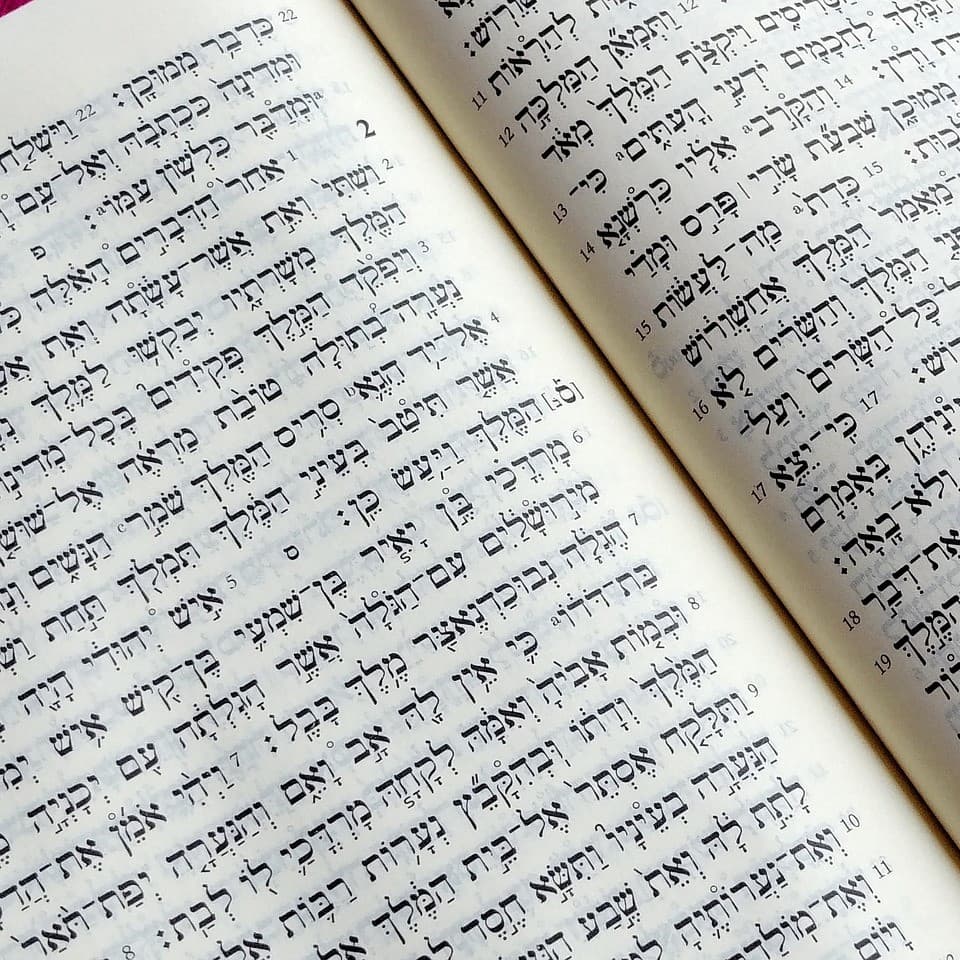 לְהַרְאוֹת 11
12 וַתְּמָאֵן הַמַּלְכָּה 12
וַיִּקְצֹף הַמֶּלֶךְ מְאֹד
הַמֶּלֶךְ לַחֲכָמִים יֹדְעֵי הָעִתִּים כִּי־ 13
וָדִין׃ 14 וְהַקָּרֹב אֵלָיו כַּרְשְׁנָא 14
מְמוּכָן שִׁבְעַת שָׂרֵי ׀ פָּרַס וּמָדַי
15 כְּדָת מַה־לַּעֲשׂוֹת 15
מַאֲמַר הַמֶּלֶךְ אֲחַשְׁוֵרוֹשׁ
הַמֶּלֶךְ וְהַשָּׂרִים לֹא 16
כָּל־הַשָּׂרִים וְעַל־
17 כִּי־יֵצֵא 17
בְּאָמְרָם
וְלֹא־בָאָה׃
אֶת־דְּבַר 18
הַמֶּלֶךְ 19
22 כִּדְבַר מְמוּכָן׃ 22 וַיִּשְׁלַח
וּמְדִינָה כִּכְתָבָהּ וְאֶל־עַם
וּמְדַבֵּר כִּלְשׁוֹן עַמּוֹ׃ פ
2 1 אַחַר הַדְּבָרִים הָאֵלֶּה
2 וַשְׁתִּי וְאֵת אֲשֶׁר־עָשָׂתָה וְאֵת
הַמֶּלֶךְ מְשָׁרְתָיו יְבַקְשׁוּ לַמֶּלֶךְ
3 וְיַפְקֵד הַמֶּלֶךְ פְּקִידִים בְּכָל־
נַעֲרָה־בְתוּלָה טוֹבַת מַרְאֶה אֶל־
4 אֶל־יַד הֵגֶא סְרִיס הַמֶּלֶךְ שֹׁמֵר הַנָּשִׁים
אֲשֶׁר תִּיטַב בְּעֵינֵי הַמֶּלֶךְ תִּמְלֹךְ תַּחַת
[ס] הַמֶּלֶךְ וַיַּעַשׂ כֵּן׃ ס 5 אִישׁ יְהוּדִי הָיָה
6 מָרְדֳּכַי בֶּן יָאִיר בֶּן־שִׁמְעִי בֶּן־קִישׁ אִישׁ
מִירוּשָׁלַיִם עִם־הַגֹּלָה אֲשֶׁר הָגְלְתָה עִם יְכָנְיָה
7 הֶגְלָה נְבוּכַדְנֶאצַּר מֶלֶךְ בָּבֶל׃ 7 וַיְהִי אֹמֵן אֶת־
בַּת־דֹּדוֹ כִּי אֵין לָהּ אָב וָאֵם וְהַנַּעֲרָה יְפַת־תֹּאַר
8 וּבְמוֹת אָבִיהָ וְאִמָּהּ לְקָחָהּ מָרְדֳּכַי לוֹ לְבַת׃ 8
הַמֶּלֶךְ וְדָתוֹ וּבְהִקָּבֵץ נְעָרוֹת רַבּוֹת אֶל
9 וַתִּלָּקַח אֶסְתֵּר אֶל־בֵּית הַמֶּלֶךְ אֶל
הַנַּעֲרָה בְעֵינָיו וַתִּשָּׂא חֶסֶד
לָתֶת לָהּ וְאֵת שֶׁבַע
10 וְאֶת־נַעֲרוֹתֶיהָ
11 וְאֶת־